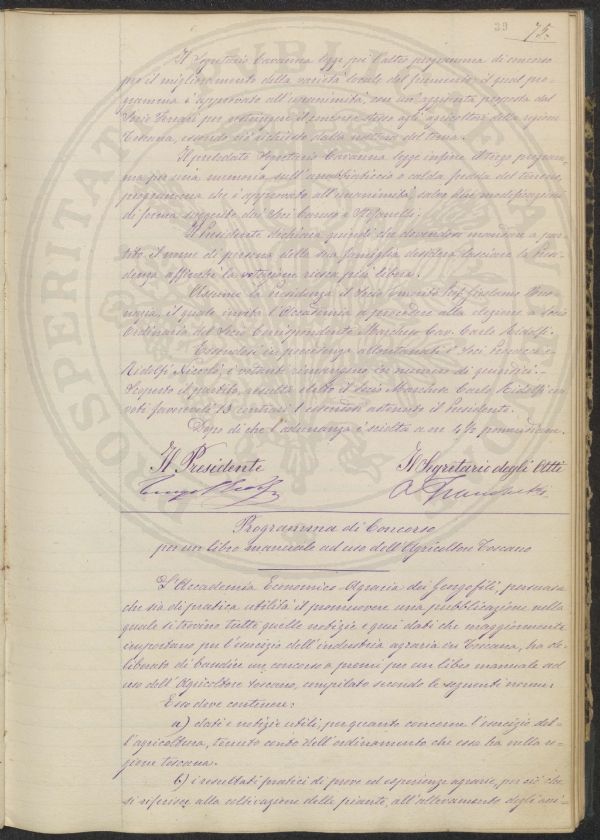 33 75.
Il Segretario Cavanna legge poi l'altro programma di concorso
per il miglioramento della varietà locale del frumento: il qual pro-
gramma è approvato all'unanimità, con un'aggiunta proposta dal
Socio Ferrari per restringere il concorso stesso agli agricoltori della regione
Toscana, essendo ciò richiesto dalla natura del tema.
Il prelodato Segretario Cavanna legge infine il terzo program-
ma per una memoria sull'arrabbiaticcio o calda fredda del terreno,
programma che è approvato all'unanimità, salvo due modificazioni
di forma suggerite dai Soci Caruso e Stefanelli.
Il Presidente dichiara quindi che dovendosi mandare a par-
tito il nome di persona della sua famiglia desidera lasciare la Presi-
denza affinchè la votazione riesca più libera.
Assume la presidenza il Socio Prof. Girolamo
il quale invita l'Accademia a procedere alla elezione a socio
Ordinario del Socio Corrispondente Marchese Cav. Carlo Ridolfi.
Essendosi in precedenza allontanati i Soci e
Ridolfi Niccolò, i votanti rimangono in numero di quindici.
Aperto il partito, resulta eletto il socio Marchese Carlo Ridolfi con
voti favorevoli 13 contrari 1 essendosi astenuto il Presidente.
Dopo di che l'adunanza è sciolta a ore 4½ pomeridiane.
Il Presidente Il Segretario degli Atti
Programma di Concorso
per un libro manuale ad uso dell'Agricoltore Toscano
L'Accademia Economico-Agraria dei Georgofili, persuasa
che sia di pratica utilità il promuovere una pubblicazione nella
quale si trovino tutte quelle notizie e quei dati che maggiormente
importano per l'esercizio dell'industria agraria in Toscana, ha de-
liberato di bandire un concorso a premi per un libro manuale ad
uso dell'Agricoltore toscano, compilato secondo le seguenti norme.
Esso deve contenere:
a) dati e notizie utili, per quanto concerne l'esercizio del-
l'agricoltura, tenuto conto dell'ordinamento che esso ha nella re-
gione toscana.
b) i resultati pratici di prove ed esperienze agrarie, per ciò che
si riferisce alla coltivazione delle piante, all'allevamento degli ani-